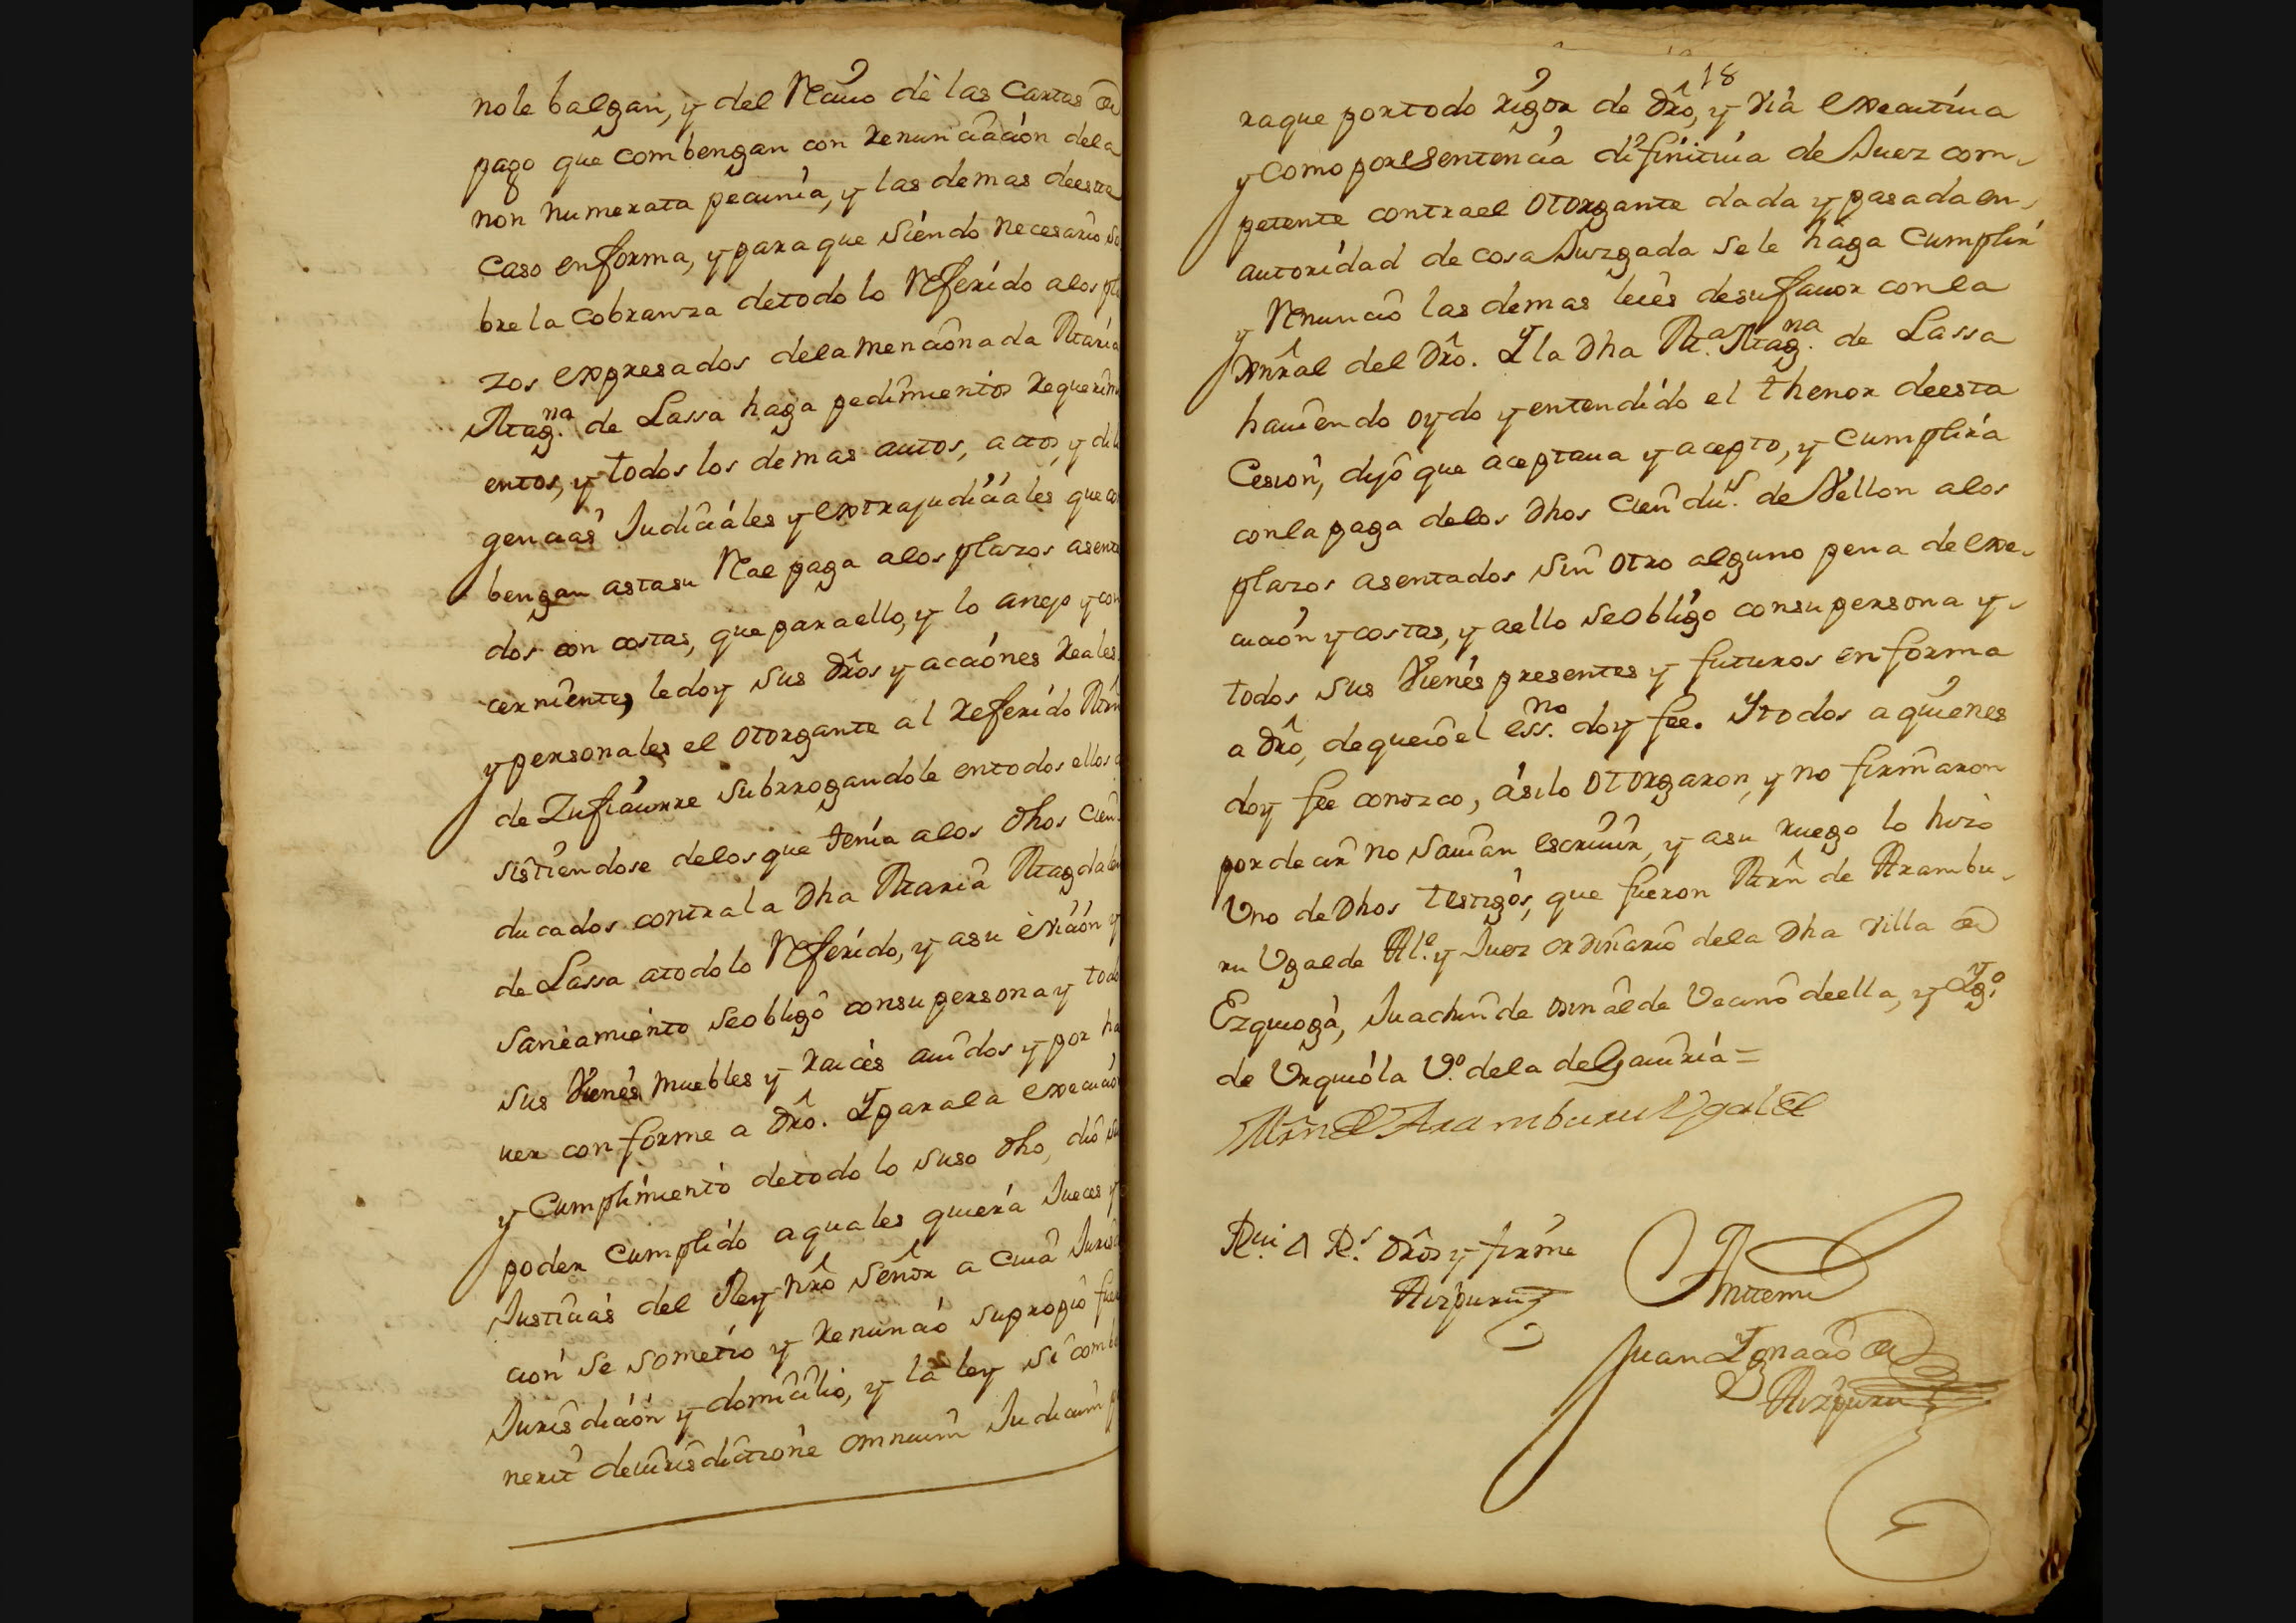 no le balgan, y del Recivo de las Cartas de
pago que combengan con renunciación de la
non numerata pecunia, y las demas de este
caso en forma, y para que siendo necesario so
bre la cobranza de todo lo Referido a los pla
zos expresados de la mencionada Maria
Magna. de Lassa haga pedimientos requerimi
entos, y todos los demas autos, actos, y dili
gencias Judiciales y extrajudiciales que com
bengan asta su Real paga a los plazos asenta
dos con costas, que para ello, y lo anejo y con
cerniente, le doy sus dros y acciones reales,
y personales el otorgante al referido Mrn
de Zufiaurre subrrogandole en todos ellos
sistiendose de los que tenia a los dhos cien
ducados contra la dha Maria Magdalen
de Lassa a todo lo Referido, y a su evición y
saneamiento se obligó con su persona y todo
sus vienes muebles y raices auidos y por ha
uer conforme a dro. Y para la execucion
y cumplimiento de todo lo suso dho, dió su
poder cumplido a quales quiera Jueces y
Justicias del Rey nro señor a cuia Jurisdi
cion se sometio y renunció su propio fuer
Jurisdición y domicilio, y la ley si combe
nerit de iurisdictione omnium Judicum p
18
ra que por todo rigor de dro, y via executiua
y como por sentencia difinitiua de Juez com
petente contra el otorgante dada y pasada en
autoridad de cosa Juzgada se le haga cumplir
y Renunció las demas leies de su fauor con la
xnral del dro. Y la dha Ma. Magna. de Lassa
hauiendo oydo y entendido el thenor de esta
Cesion, dijo que aceptaua y acepto, y cumplira
con la paga de los dhos cien dus. de Vellon a los
plazos asentados sin otro alguno pena de exe
cución y costas, y a ello se obligo con su persona y
todos sus vienes presentes y futuros en forma
a dro, de que io el essno. doy fee. Y todos a quienes
doy fee conozco, asi lo otorgaron, y no firmaron
por decir no sauian escriuir, y a su ruego lo hizo
Uno de dhos testigos, que fueron Mrn de Arambu
ru Ugalde Ale. y Juez ordinario de la dha villa de
Ezquioga, Juachin de Oinalde Vecino de ella, y Ygo.
de Urquiola Vo. de la de Gauiria =
Mrn de Aramburu Ugalde
Rui A Rs. dros y firme
Aizpuru
Antemi
Juan Ygnacio de
Aizpuru